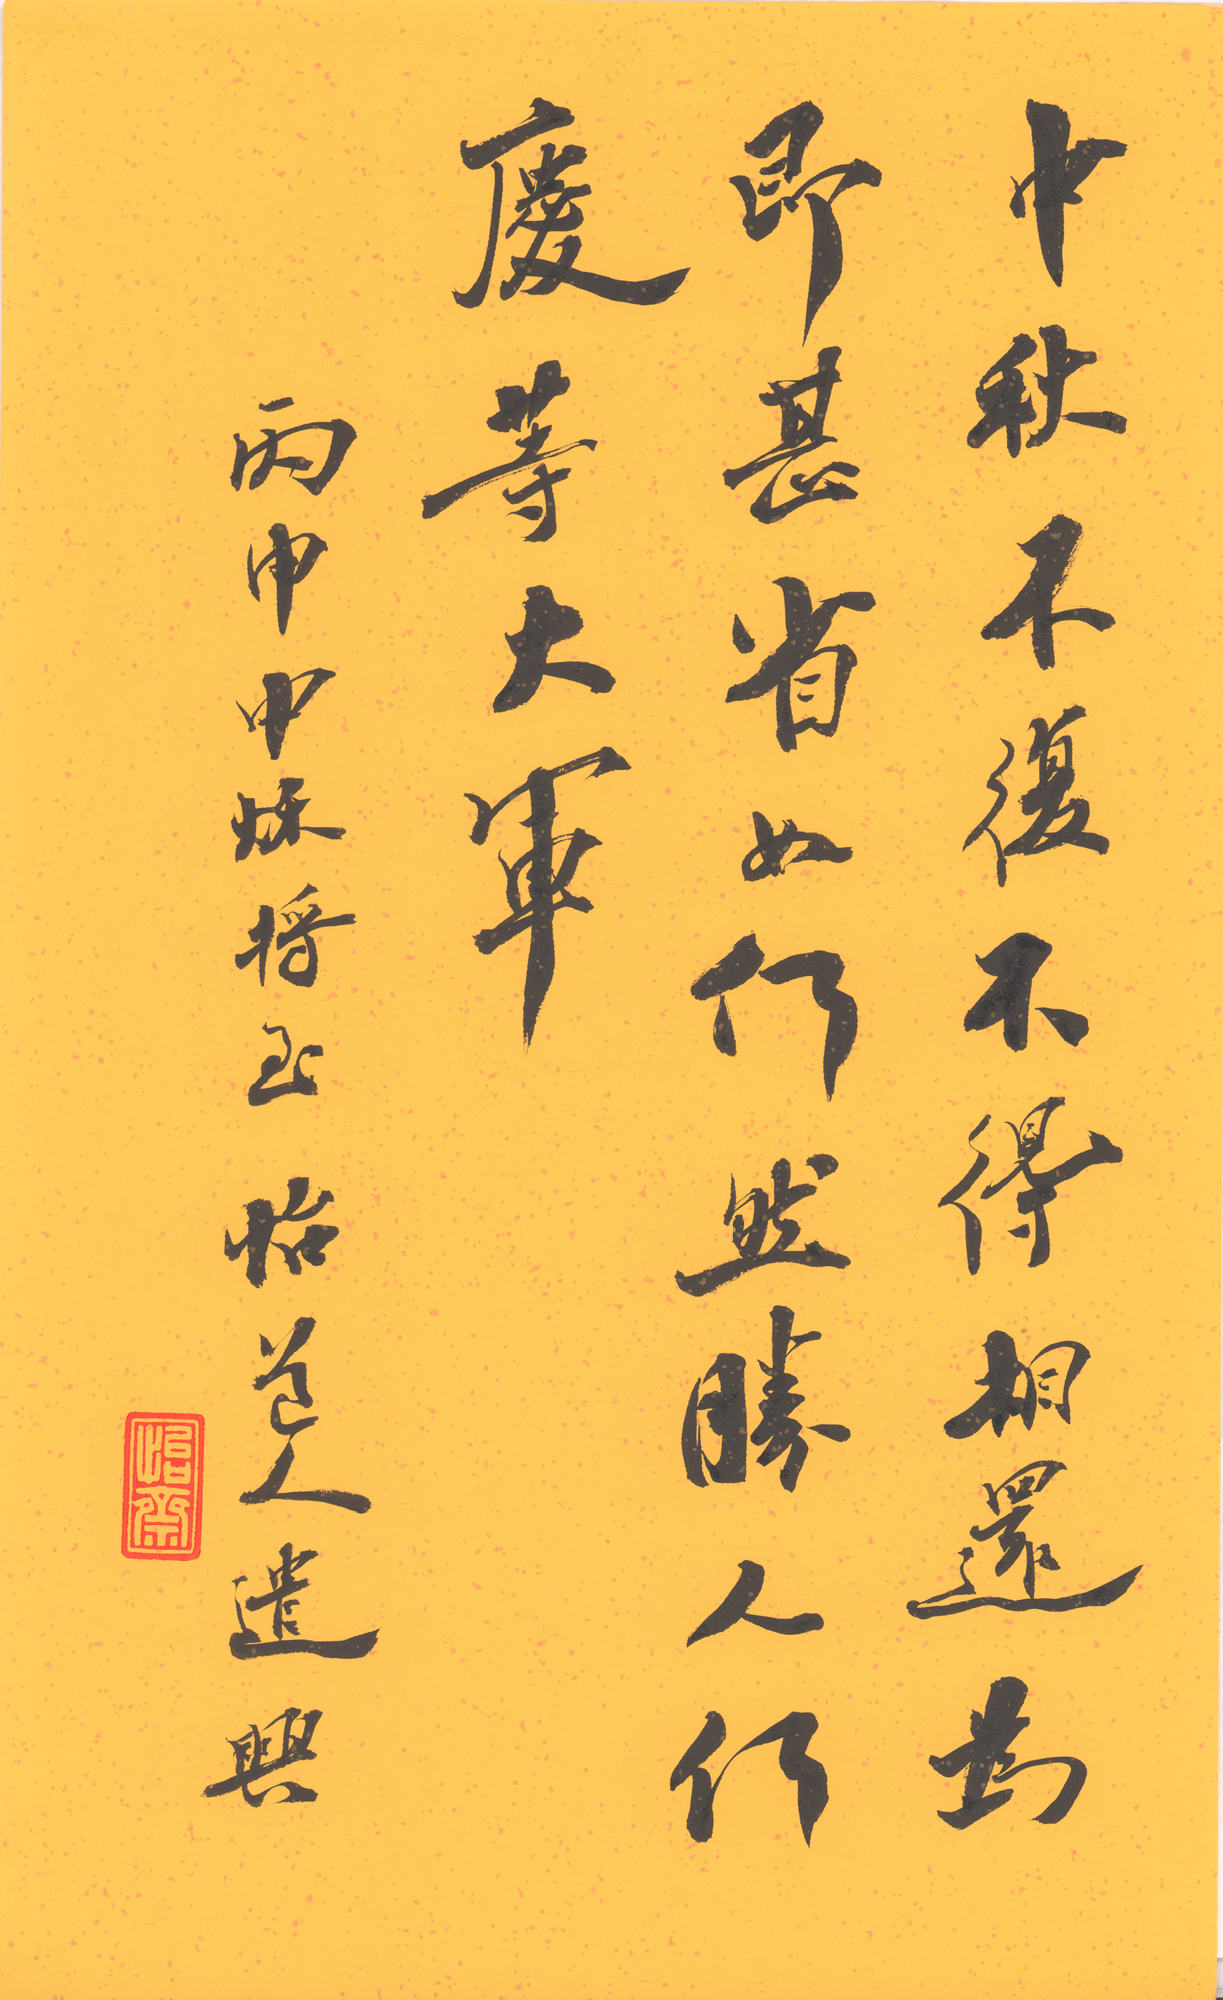 中秋不復不得相還為
即甚省如何然勝人何
慶等大軍
丙申中秌將至 怡道人遣興
怡齋